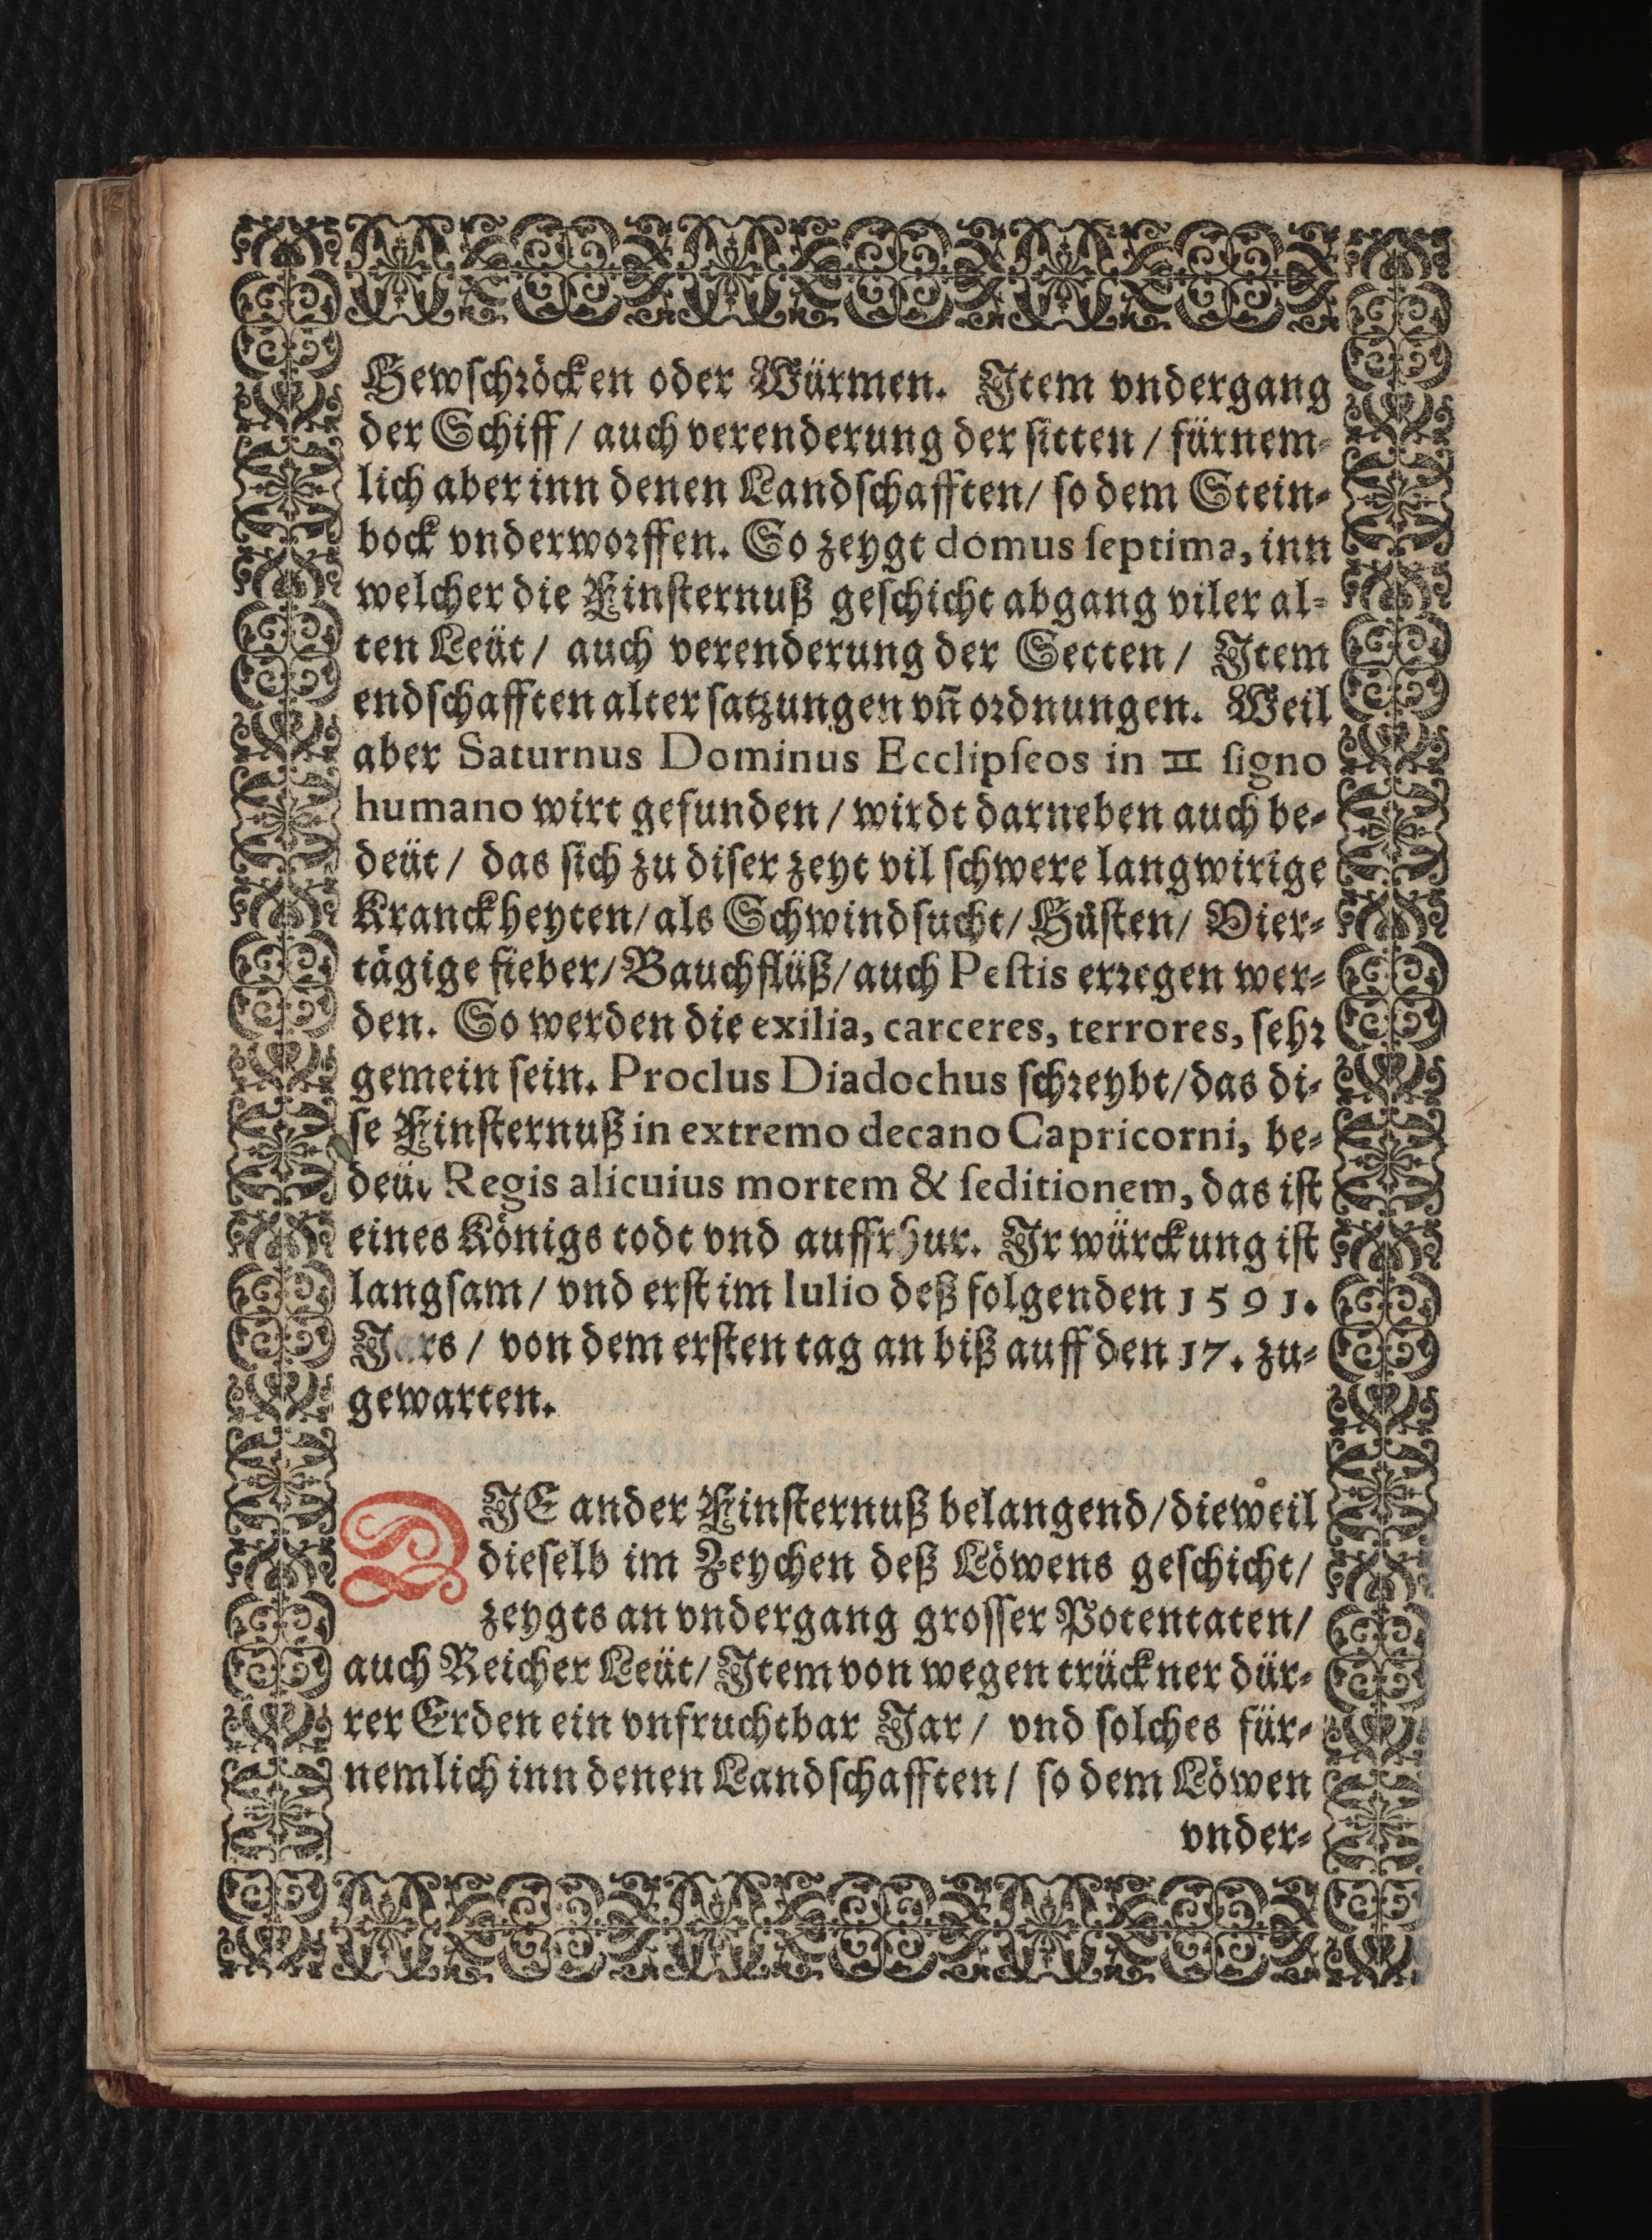 Hewſchröcken oder Würmen. Item vndergang
der Schiff / auch verenderung der ſitten / fürnem-
lich aber inn denen Landſchafften / ſo dem Stein-
bock vnderworffen. So zeygt domus ſeptima, inn
welcher die Finſternuß geſchicht abgang viler al-
ten Leüt / auch verenderung der Secten / Item
endſchafften alter ſatzungen vñ ordnungen. Weil
aber Saturnus Dominus Ecclipſeos in ♊ ſigno
humano wirt gefunden / wirdt darneben auch be-
deüt / das ſich zu diſer zeyt vil ſchwere langwirige
Kranckheyten / als Schwindſucht / Hůſten / Vier-
tägige fieber / Bauchflüß / auch Peſtis erregen wer-
den. So werden die exilia, carceres, terrores, ſehr
gemein ſein. Proclus Diadochus ſchreybt / das di-
ſe Finſternuß in extremo decano Capricorni, be-
deüt Regis alicuius mortem & ſeditionem, das iſt
eines Königs todt vnd auffrhur. Ir würckung iſt
langſam / vnd erſt im Iulio deß folgenden 1591.
Jars / von dem erſten tag an biß auff den 17. zu-
gewarten.
DIE ander Finſternuß belangend / dieweil
dieſelb im Zeychen deß Löwens geſchicht /
zeygts an vndergang groſſer Potentaten /
auch Reicher Leüt / Item von wegen trückner dür-
rer Erden ein vnfruchtbar Jar / vnd ſolches für-
nemlich inn denen Landſchafften / ſo dem Löwen
vnder-